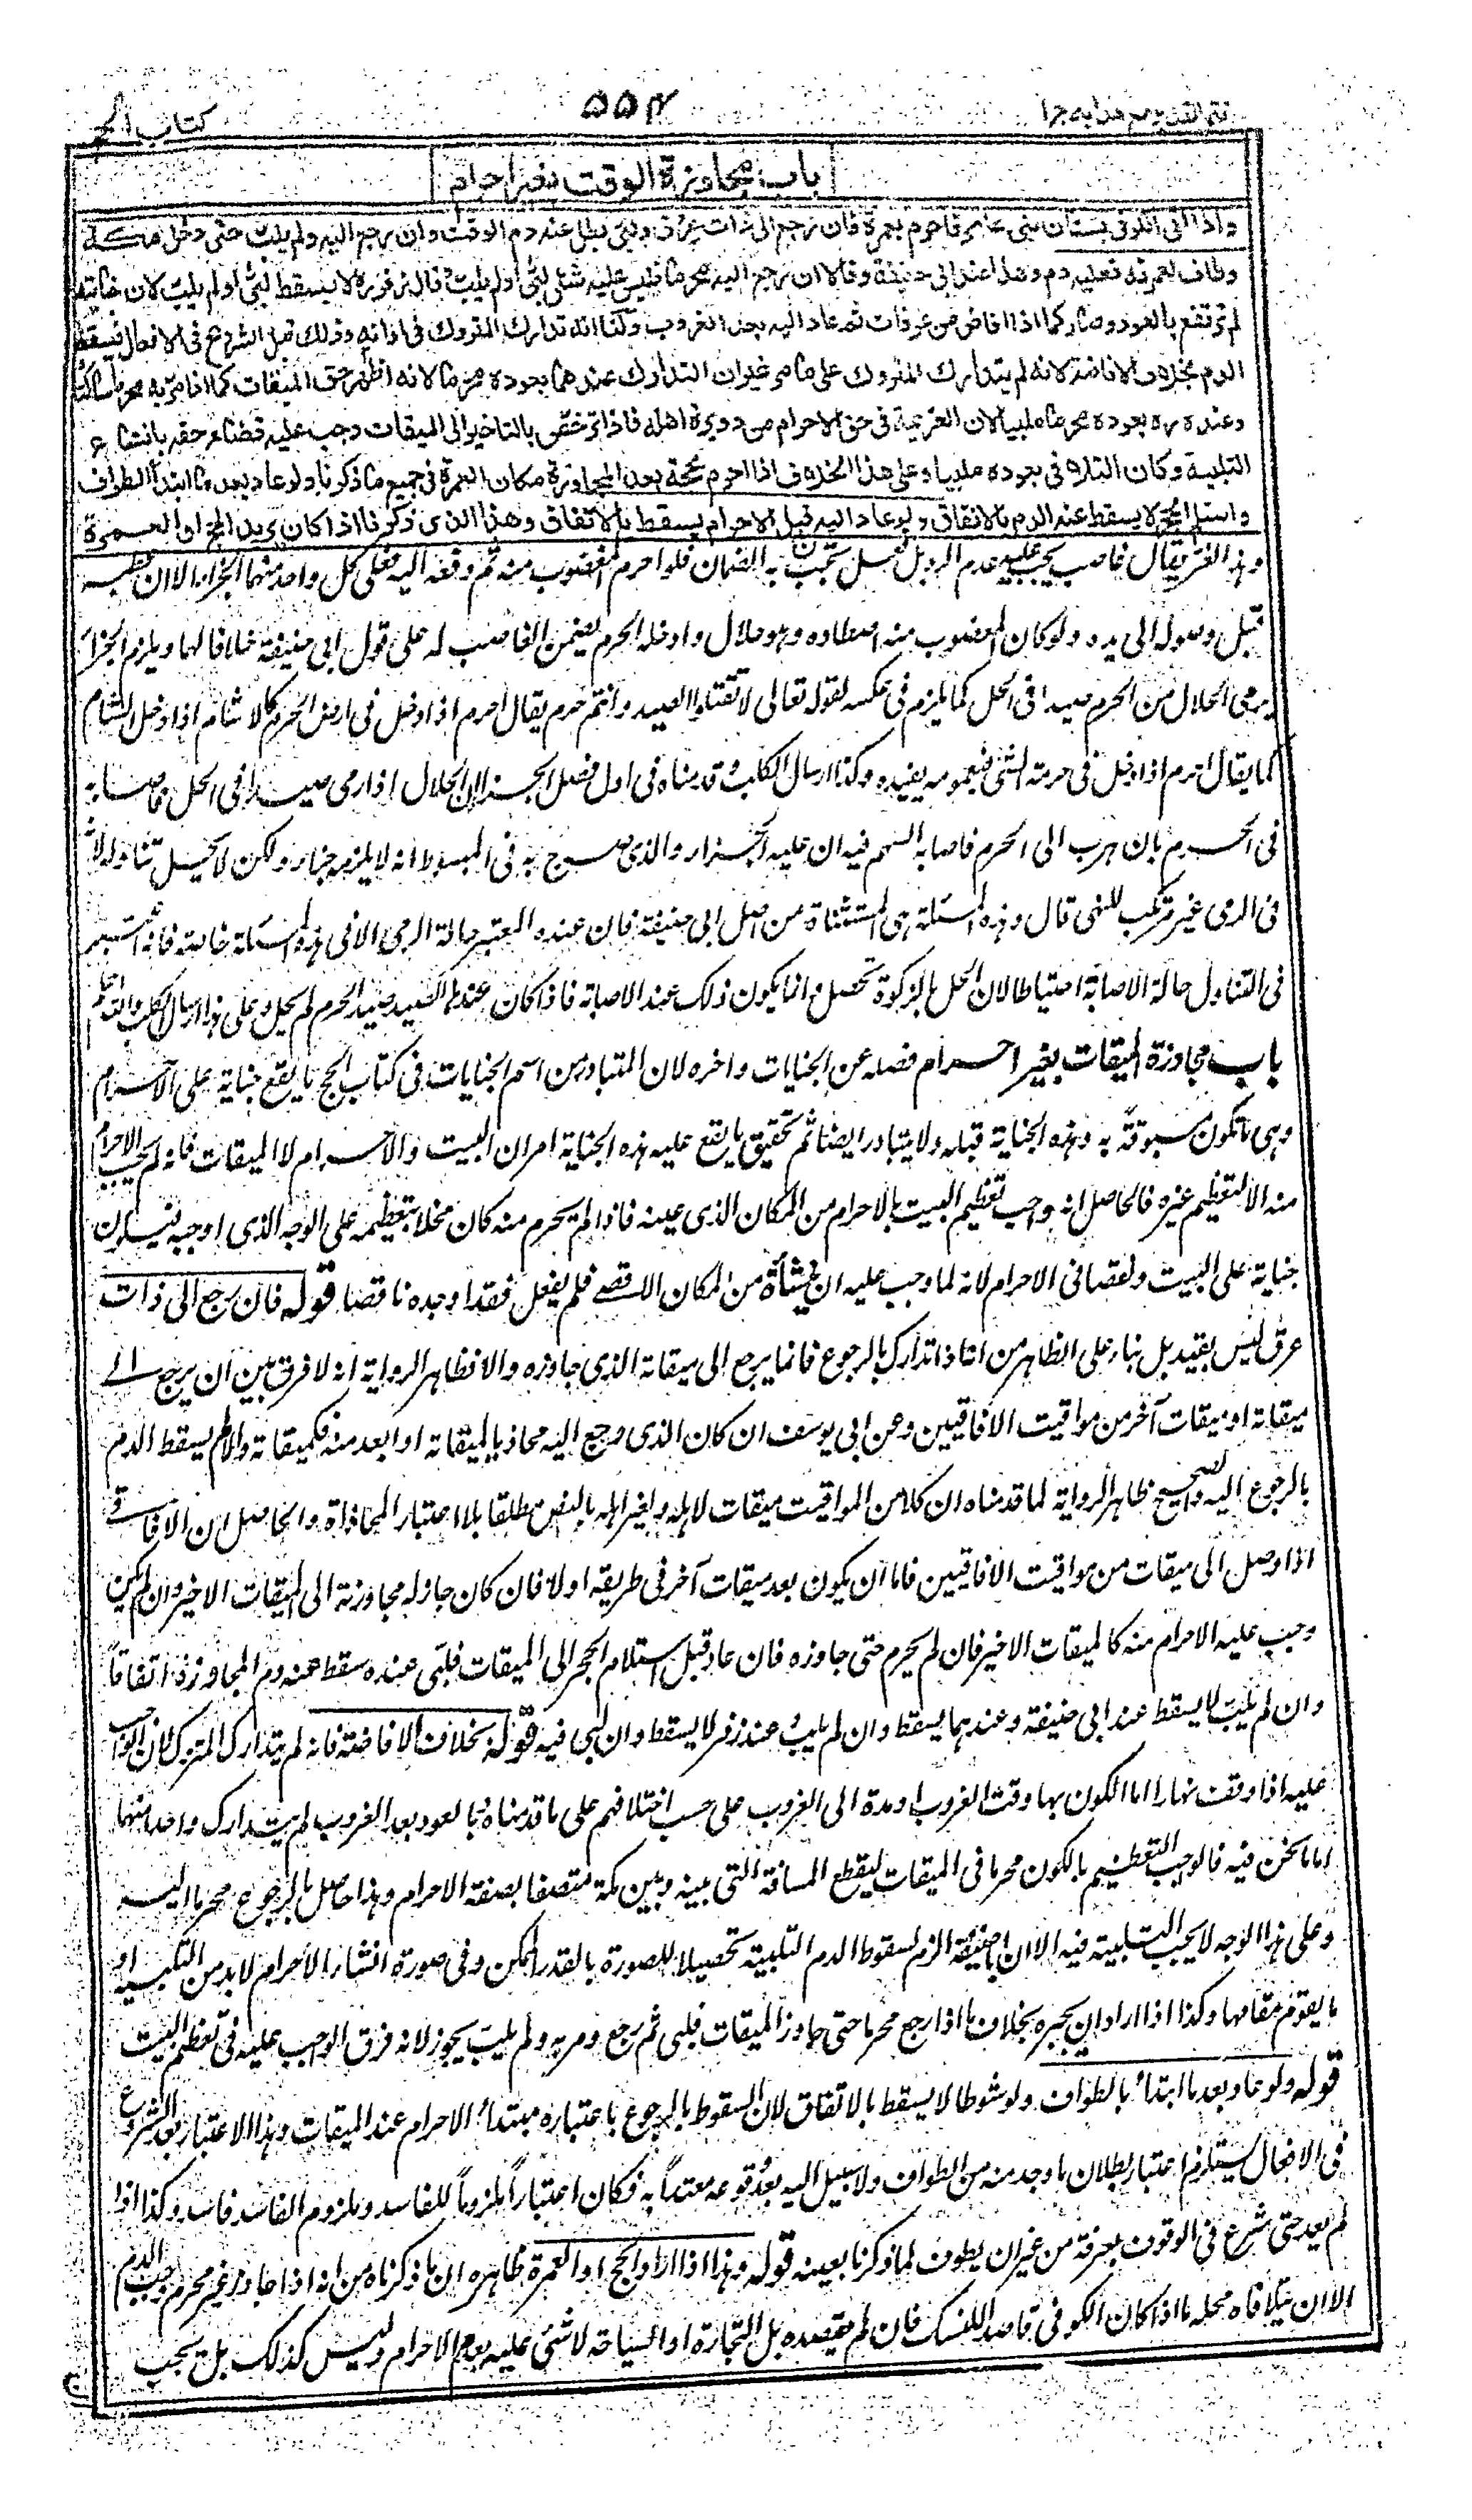 فتح القدير مع هدايه جرا
۵۵۴
كتاب الحج
باب مجاوزة الوقت بغير احرام
واذا اتى الكوفى بستان بنى عامر فاحرم بعمرة فان رجع الى ذات عرق ولبى بطل عنه دم الوقت وان رجع اليه ولم يلب حتى دخل مكة
وطاف لعمرته فعليه دم وهذا عند ابى حنيفة وقالا ان رجع اليه محرما فليس عليه شئ لبى او لم يلب وقال زفر ره لا يسقط لبى او لم يلب لان جنايته
لم ترتفع بالعود وصار كما اذا افاض من عرفات ثم عاد اليه بعد الغروب ولنا انه تدارك المتروك فى اوانه وذلك قبل الشروع فى الافعال فيسقط
الدم بخلاف الافاضة لانه لم يتدارك المتروك على ما مر غير ان التدارك عندهما بعوده محرما لانه اظهر حق الميقات كما اذا مر به محرما ساكتا
وعنده ره بعوده محرما ملبيا لان العزيمة فى حق الاحرام من دويرة اهله فاذا ترخص بالتاخير الى الميقات وجب عليه قضاء حقه بانشاء
التلبية وكان التلافى بعوده ملبيا وعلى هذا الخلاف اذا احرم بحجة بعد المجاوزة مكان العمرة فى جميع ما ذكرنا ولو عاد بعد ما ابتدأ الطواف
واستلم الحجر لا يسقط عنه الدم بالاتفاق ولو عاد اليه قبل الاحرام يسقط بالاتفاق وهذا الذى ذكرنا اذا كان يريد الحج او العمرة
وهذا لغز يقال غاصب يجب عليه عدم الرد بل لو فعل يجب به الضمان فلو احرم المغصوب منه ثم دفعه اليه فعلى كل واحد منهما الجزاء الا ان عطب
قبل وصوله الى يده ولو كان المغصوب منه اصطاده وهو حلال وادخله الحرم يضمن الغاصب له على قول ابى حنيفة خلافا لهما ويلزم الجزاء
برمى الحلال من الحرم صيدا فى الحل كما يلزم فى عكسه لقوله تعالى لا تقتلوا الصيد وانتم حرم يقال احرم اذا دخل فى ارض الحرم كاشام اذا دخل الشام
كما يقال احرم اذا دخل فى حرمة الشئ فبعمومه يفيده وكذا ارسال الكلب وقدمناه فى اول فصل الجزاء ان الحلال اذا رمى صيدا فى الحل فاصابه
فى الحرم بان هرب الى الحرم فاصابه السهم فيه ان عليه الجزاء والذى صرح به فى المبسوط انه لا يلزمه جزاء ولكن لا يحل تناوله لانه
فى الرمى غير مرتكب للنهى قال وهذه المسئلة هى المستثناة من اصل ابى حنيفة فان عنده المعتبر حالة الرمى الا فى هذه المسئلة خاصة فانه اعتبر
فى التناول حالة الاصابة احتياطا لان الحل بالزكوة تحصل وانما يكون ذلك عند الاصابة فاذا كان عندها الصيد صيد الحرم لم يحل وعلى هذا ارسال الكلب والله اعلم
باب مجاوزة الميقات بغير احرام فصله عن الجنايات واخره لان المتبادر من اسم الجنايات فى كتاب الحج ما يقع جناية على الاحرام
وهى ما تكون مسبوقة به وهذه الجناية قبله ولا يتبادر ايضا ثم تحقيق ما يقع عليه هذه الجناية امران البيت والاحرام لا الميقات فانه لم يجب الاحرام
منه الا لتعظيم غيره فالحاصل انه وجب تعظيم البيت بالاحرام من المكان الذى عينه فاذا لم يحرم منه كان مخلا بتعظيمه على الوجه الذى اوجبه فيكون
جناية على البيت ونقصا فى الاحرام لانه لما وجب عليه ان ينشأة من المكان الاقصى فلم يفعل فقد اوجده ناقصا قوله فان رجع الى ذات
عرق ليس بقيد بل بناء على الظاهر من انه اذا تدارك بالرجوع فانما يرجع الى ميقاته الذى جاوزه والا فظاهر الرواية انه لا فرق بين ان يرجع الى
ميقاته او ميقات آخر من مواقيت الآفاقيين وعن ابى يوسف ان كان الذى رجع اليه محاذيا لميقاته او ابعد منه فكميقاته والا لم يسقط الدم
بالرجوع اليه والصحيح ظاهر الرواية لما قدمناه ان كلا من المواقيت ميقات لاهله ولغير اهله بالنص مطلقا بلا اعتبار المحاذاة والحاصل ان الآفاقى
اذا وصل الى ميقات من مواقيت الآفاقيين فاما ان يكون بعده ميقات آخر فى طريقه اولا فان كان جاز له مجاوزته الى الميقات الاخير وان لم يكن
وجب عليه الاحرام منه كالميقات الاخير فان لم يحرم حتى جاوزه فان عاد قبل استلام الحجر الى الميقات فلبى عنده سقط عنه دم المجاوزة اتفاقا
وان لم يلب لا يسقط عند ابى حنيفة وعندهما يسقط وان لم يلب وعند زفر لا يسقط وان لبى فيه قوله بخلاف الافاضة فانه لم يتدارك المتروك لان الواجب
عليه اذا وقف نهارا اما الكون بها وقت الغروب او مده الى الغروب على حسب اختلافهم على ما قدمناه فبالعود بعد الغروب لم يتدارك واحد منهما
اما ما نحن فيه فالواجب التعظيم بالكون محرما فى الميقات ليقطع المسافة التى بينه وبين مكة متصفا بصفة الاحرام وهذا حاصل بالرجوع محرما اليه
وعلى هذا الوجه لا يجب التلبية فيه الا ان ابا حنيفة الزم لسقوط الدم التلبية تحصيلا للصورة بالقدر الممكن وفى صورة انشاء الاحرام لا بد من التلبية او
ما يقوم مقامها وكذا اذا اراد ان يجبره بخلاف ما اذا رجع محرما حتى جاوز الميقات فلبى ثم رجع ومر به ولم يلب يجوز لانه فوق الواجب عليه فى تعظيم البيت
قوله ولو عاد بعد ما ابتدأ بالطواف ولو شوطا لا يسقط بالاتفاق لان السقوط بالرجوع باعتباره مبتدأ الاحرام عند الميقات وهذا الاعتبار بعد الشروع
فى الافعال يستلزم اعتبار بطلان ما وجد منه من الطواف ولا سبيل اليه بعد وقوعه معتدا به فكان اعتبارا ملزوما للفاسد وملزوم الفاسد فاسد وكذا اذا
لم يعد حتى شرع فى الوقوف بعرفة من غير ان يطوف لما ذكرنا بعينه قوله وهذا اذا اراد الحج او العمرة ظاهره ان ما ذكرناه من انه اذا جاوز غير محرم وجب الدم
الا ان يتلافاه محله ما اذا كان الكوفى قاصدا للنسك فان لم يقصده بل التجارة او السياحة لا شئ عليه بعدم الاحرام وليس كذلك بل يجب